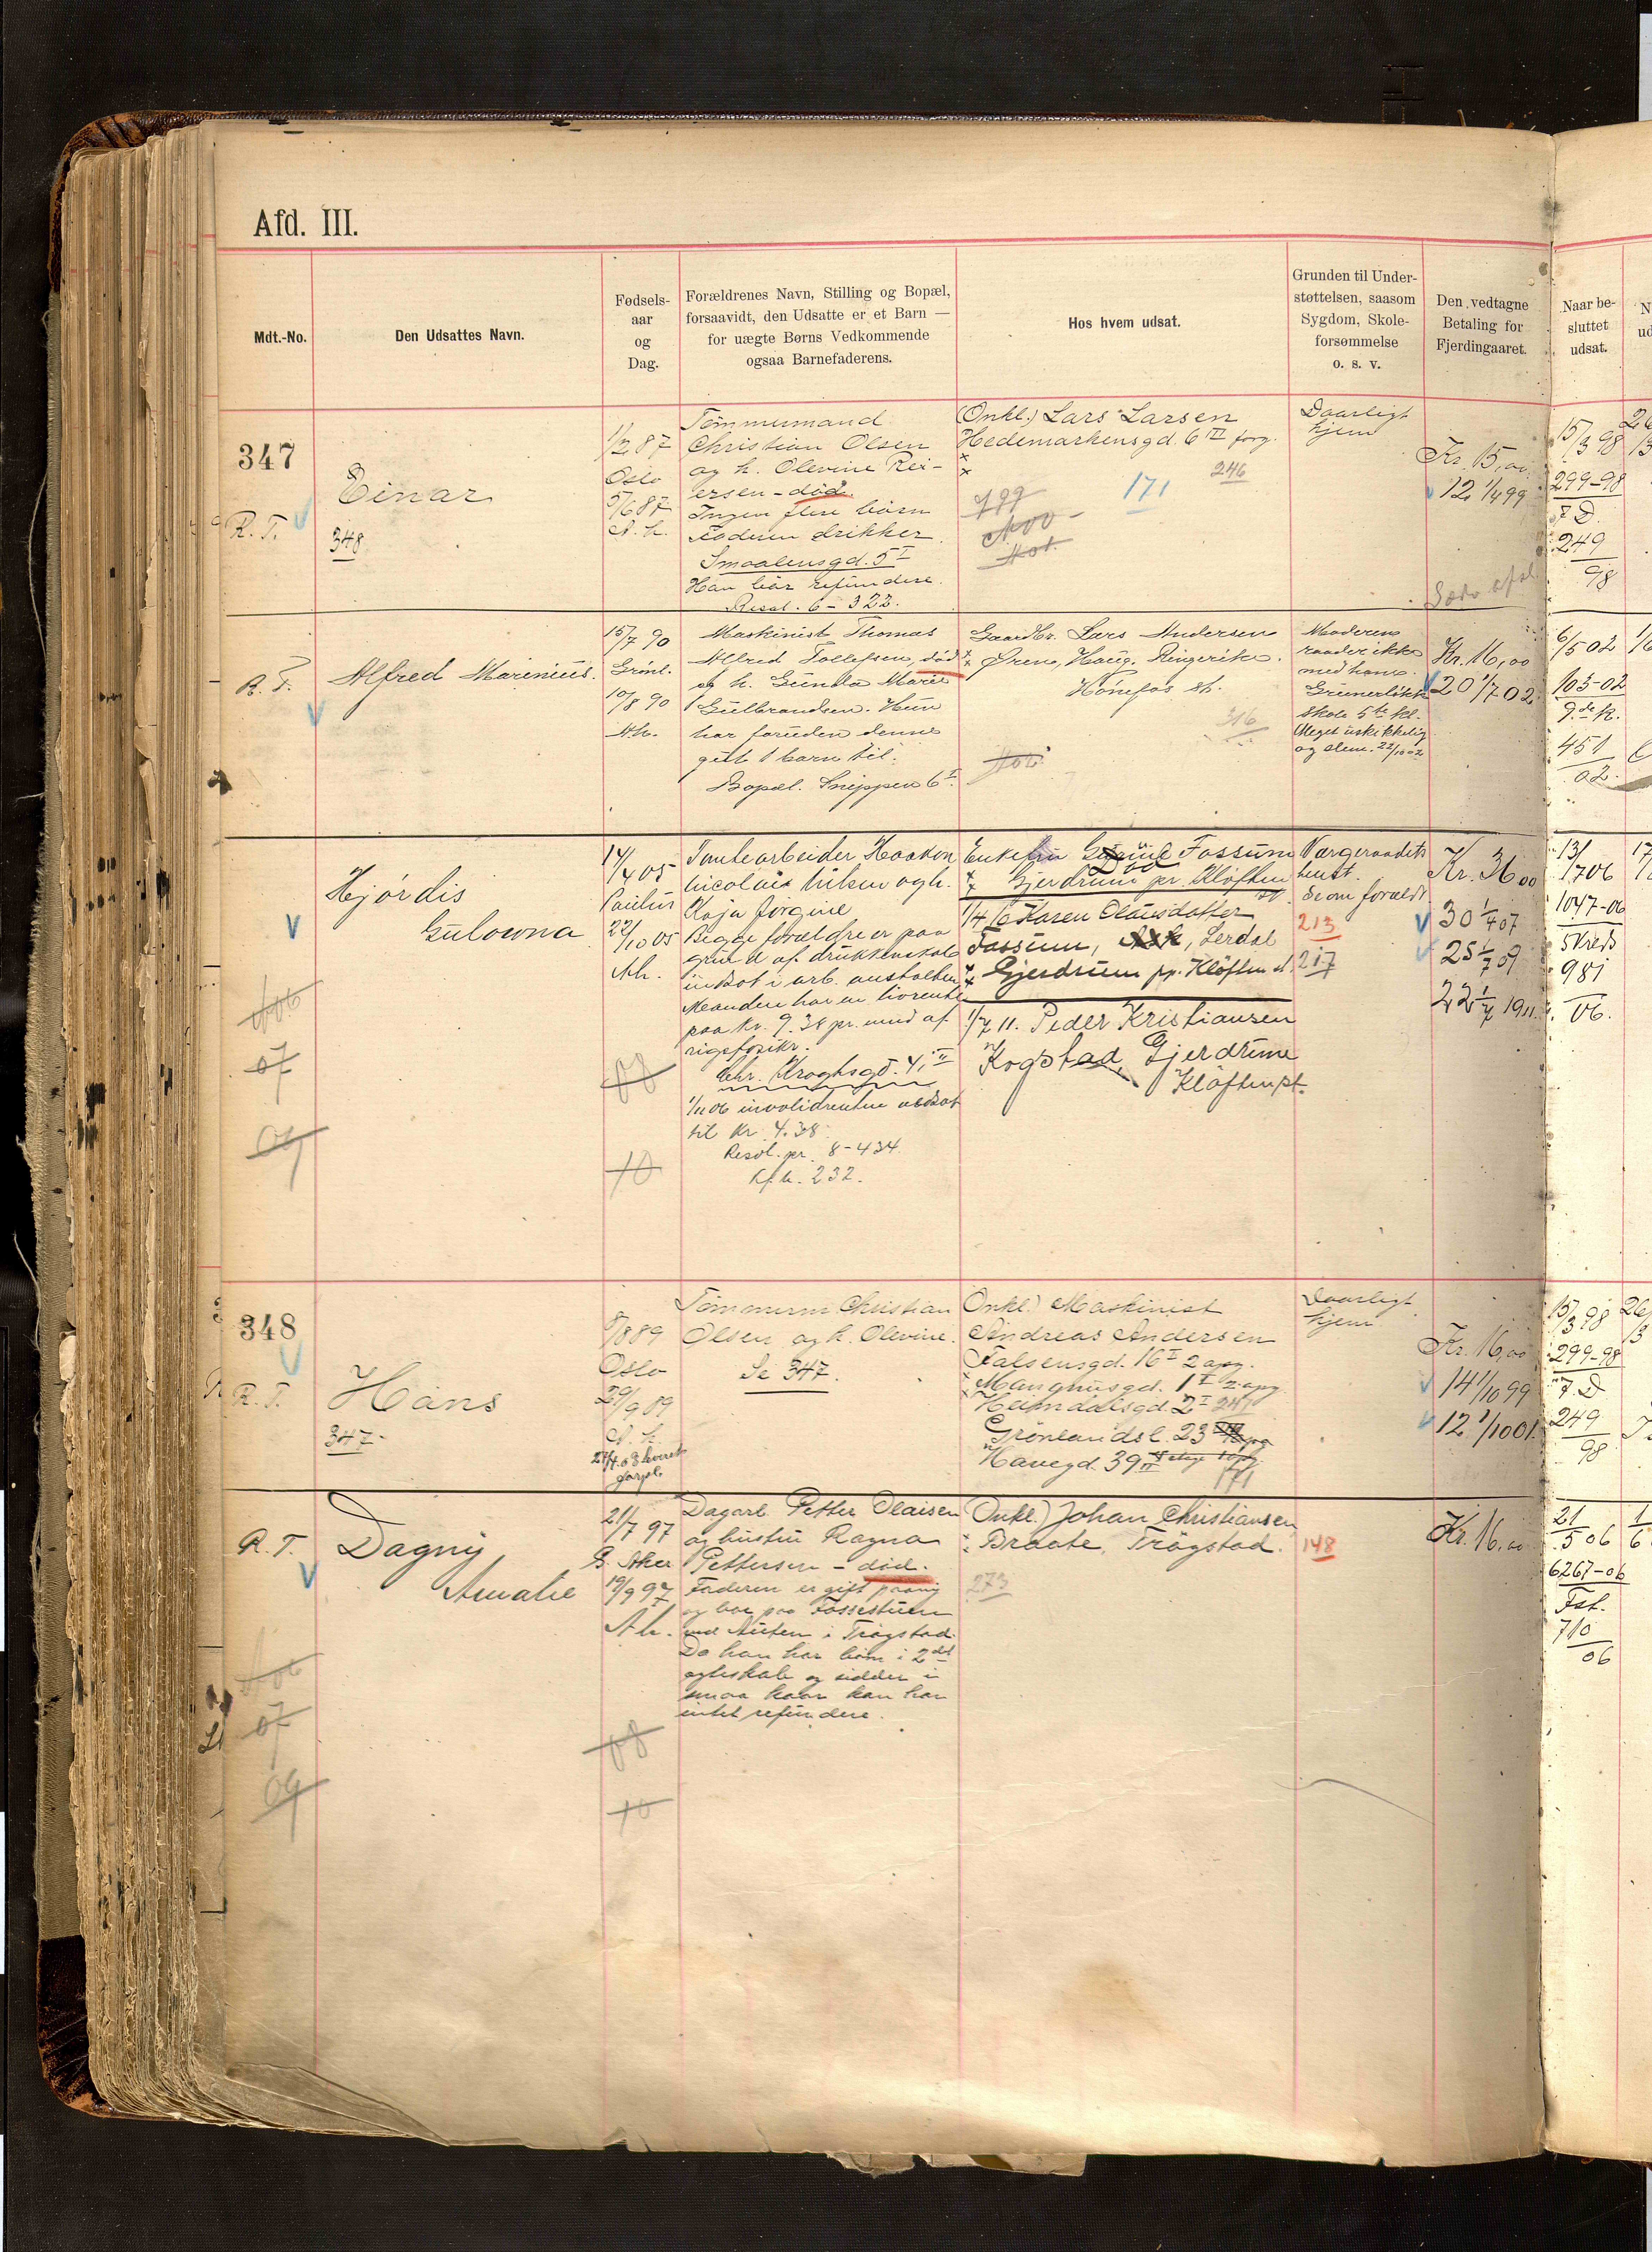 Afd. III.
Mdt.-No.
Den Udsattes Navn.
Fødsels-
aar
og
Dag.
Forældrenes Navn, Stilling og Bopæl,
forsaavidt, den Udsatte er et Barn —
for uægte Børns Vedkommende
ogsaa Barnefaderens.
Hos hvem udsat.
Grunden til Under-
støttelsen, saasom
Sygdom, Skole-
forsømmelse
o. s. v.
Den vedtagne
Betaling for
Fjerdingaaret.
Naar be-
sluttet
udsat.
347
R. T.
Einar
348
1/2 87
Oslo
5/6 87
Tømmermand
Christian Olsen
og h. Olevine Rei-
ersen - død.
Ingen flere børn
Faderen drikker.
Smaalensgd. 5 I
Han bør refundere.
Resol. 6 - 322.
(Onkl.) Lars Larsen
Hedemarkensgd. 6 II
246
171
Daarligt
hjem
Kr. 15,00
12 1/4 99
15/3 98
299-98
7 D.
249
98
R. T.
Alfred Marinius.
15/7 90
Grönl.
10/8 90
A.h.
Maskinist Thomas
Alfred Tollefsen, død
og h. Gunda Marie
Gulbrandsen. Hun
har foruden denne
gutt 1 barn til.
Bopæl. Snippen 6 I
Gaardbr. Lars Andersen
Øren, Haug, Ringerike.
Hönefos st.
316
Moderen
raader ikke
med ham.
Grünerløkk
Skole 5te kl.
Meget uskikkelig
og slem. 22/10 02
Kr. 16,00
20 1/7 02
6/5 02
103-02
9.de k.
451
02.
Hjørdis
Gulowna
14/4 05
Paulus
22/10 05
Ah.
Tomtearbeider Haakon
Nicolai Nilsen og h.
Kaja Jørgine
Begge forældre er paa
grund af drukkenskab
indsat i arb. anstalten
Manden har en livrente
paa Kr. 9.38 pr. mnd af
rigsforsikr.
Chr. Kroghsgd. 4, II
1/11 06 invaliderenten nedsat
til Kr. 4.38.
Resol. pr. 8-434.
Enkefru Fossum
Død
Gjerdrum pr. Kløften
st.
1/4 Karen Olausdatter
Fossum, Lerdal
Gjerdrum pr. Kløften st.
1/7 11. Peder Kristiansen
Kogstad, Gjerdrum
Kløften st.
213
217
Værgeraadets
henst.
Se om foræld.
Kr. 36 00
30 1/4 07
25 1/7 09
22 1/7 1911.
13/
1 06
1047-06
5 Kreds
981
06.
07
09
08
10
348
R. T.
Hans
347
8/8 89
Oslo
29/9 89
Tømmerm. Christian
Olsen og h. Olevine.
Se 347.
Onkl.) Maskinist
Andreas Andersen
Falsensgd. 16 I 2 opg.
Mangnusgd. 1 I 2 opg
Heimdalsgd. 2 I
Grönlandsl. 23
Havegd. 39 II
171
Daarligt
hjem
Kr. 16,00
14 1/10 99
12 1/10 01
15/3 98
299-98
7. D
249
98
R. T.
Dagny
Amalie
21/7 97
Ø. Aker
19/9 97
Ah.
Dagarb. Petter Olaisen
og hustru Ragna
Pettersen - død.
Faderen er gift paany
og bor paa Fossestuen
ved Auten i Trøgstad.
Da han har børn i 2det
egteskab og sidder i
smaa kaar kan han
intet refundere.
Onkl.) Johan Christiansen
Braate, Trøgstad.
148
273
Kr. 16,00
21/
5 06
6267-06
Fat.
710
06
07
09
08
10